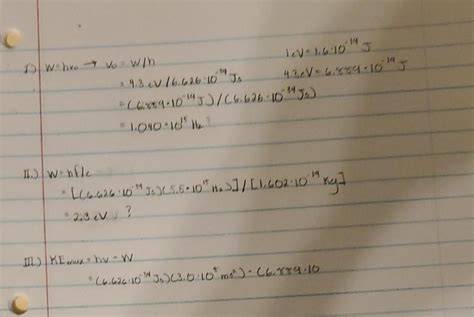 I.) W=hν₀ → ν₀ = W/h 1eV=1.6·10⁻¹⁹ J
= 4.3 eV/6.626·10⁻³⁴ Js 4.3eV=6.889·10⁻¹⁹ J
= (6.889·10⁻¹⁹ J)/(6.626·10⁻³⁴ Js)
= 1.040·10¹⁵ Hz ?
II.) W=hf/c
= [(6.626·10⁻³⁴ Js)(5.5·10¹⁵ Hz)]/[1.602·10⁻¹⁹ Kg]
= 2.3 eV ?
III.) KEmax = hν - W
= (6.626·10⁻³⁴ Js)(3.0·10⁸ ms²) - (6.889·10